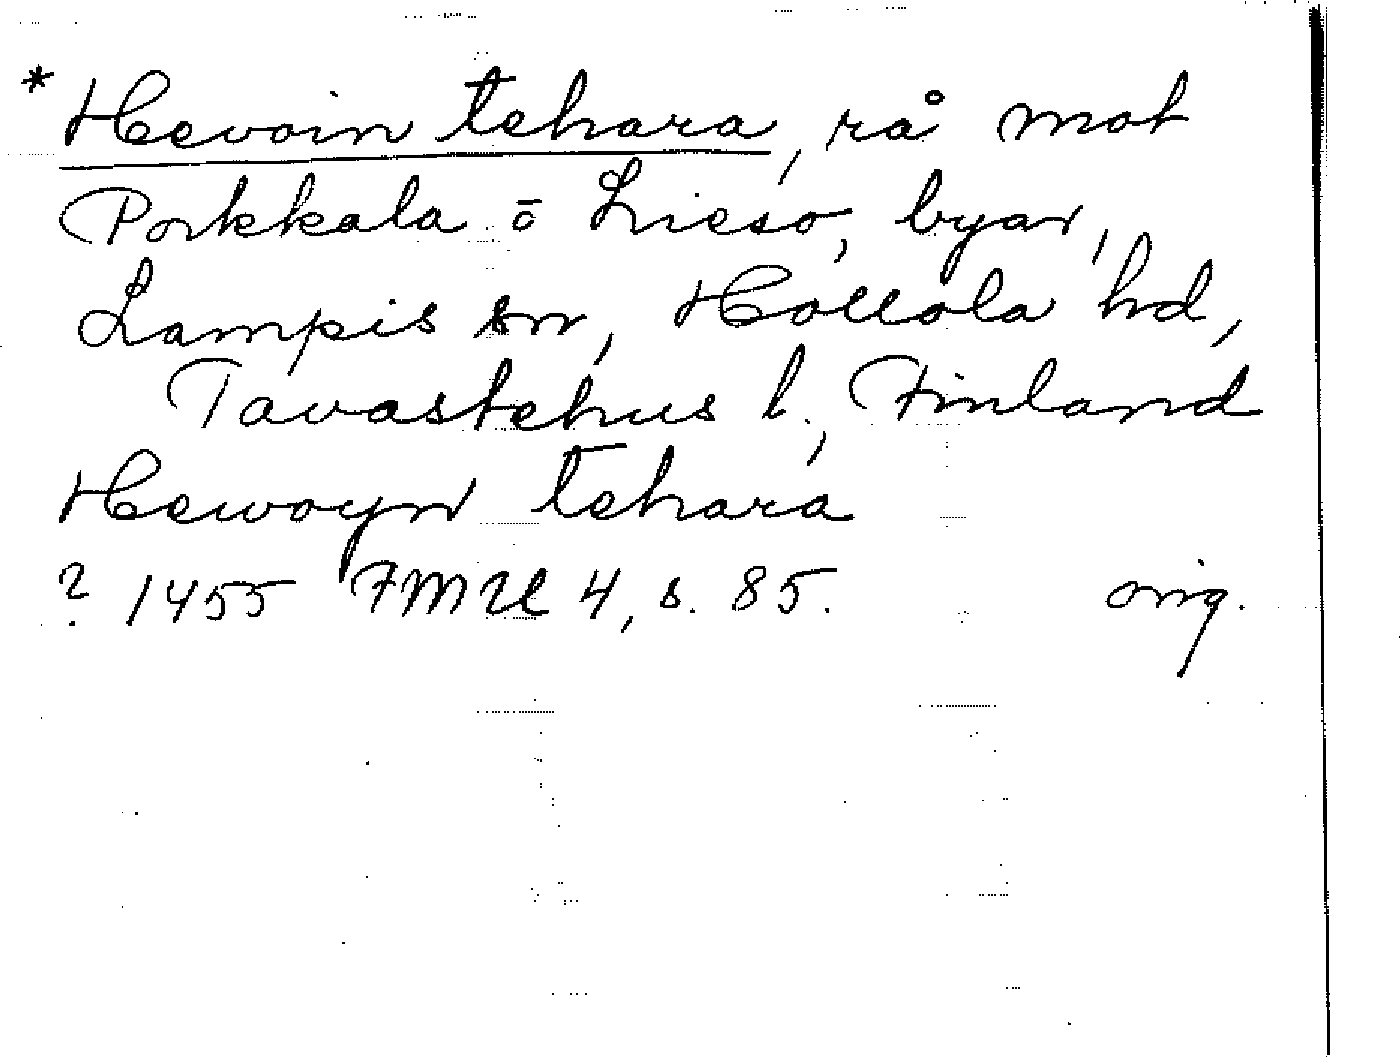 * Hevoin tehara, rå mot
Porkkala o Lieso, byar,
Lampis sn, Hollola hd,
Tavastehus l., Finland
Hewoyn tehara
? 1455 FMU 4, s. 85. orig.